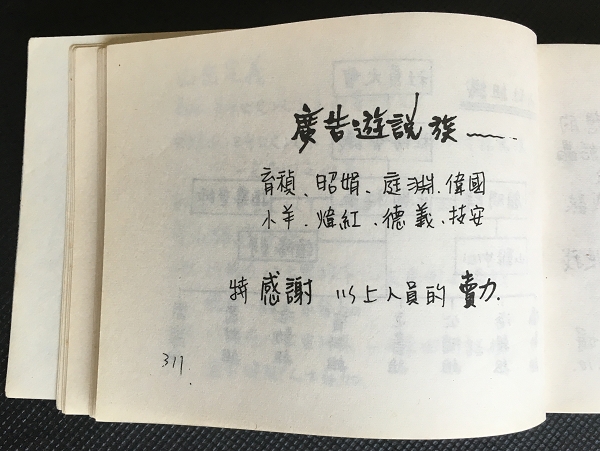 廣告遊說族
育禎、昭娟、庭淵、偉國
小羊、煒紅、德義、技安
特感謝 以上人員的賣力.
317